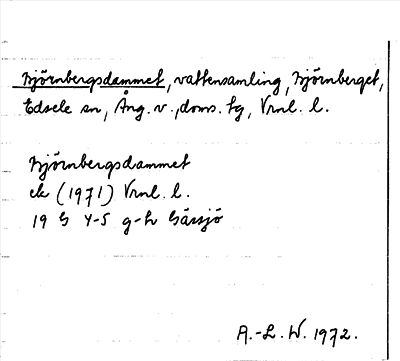 Björnbergsdammet, vattensamling, Björnberget,
Edsele sn, Ång. v., doms. tg, Vrnl. l.
Björnbergsdammet
ek (1971) Vrnl. l.
19 G 4-5 g-h Gåssjö
A.-L. W. 1972.